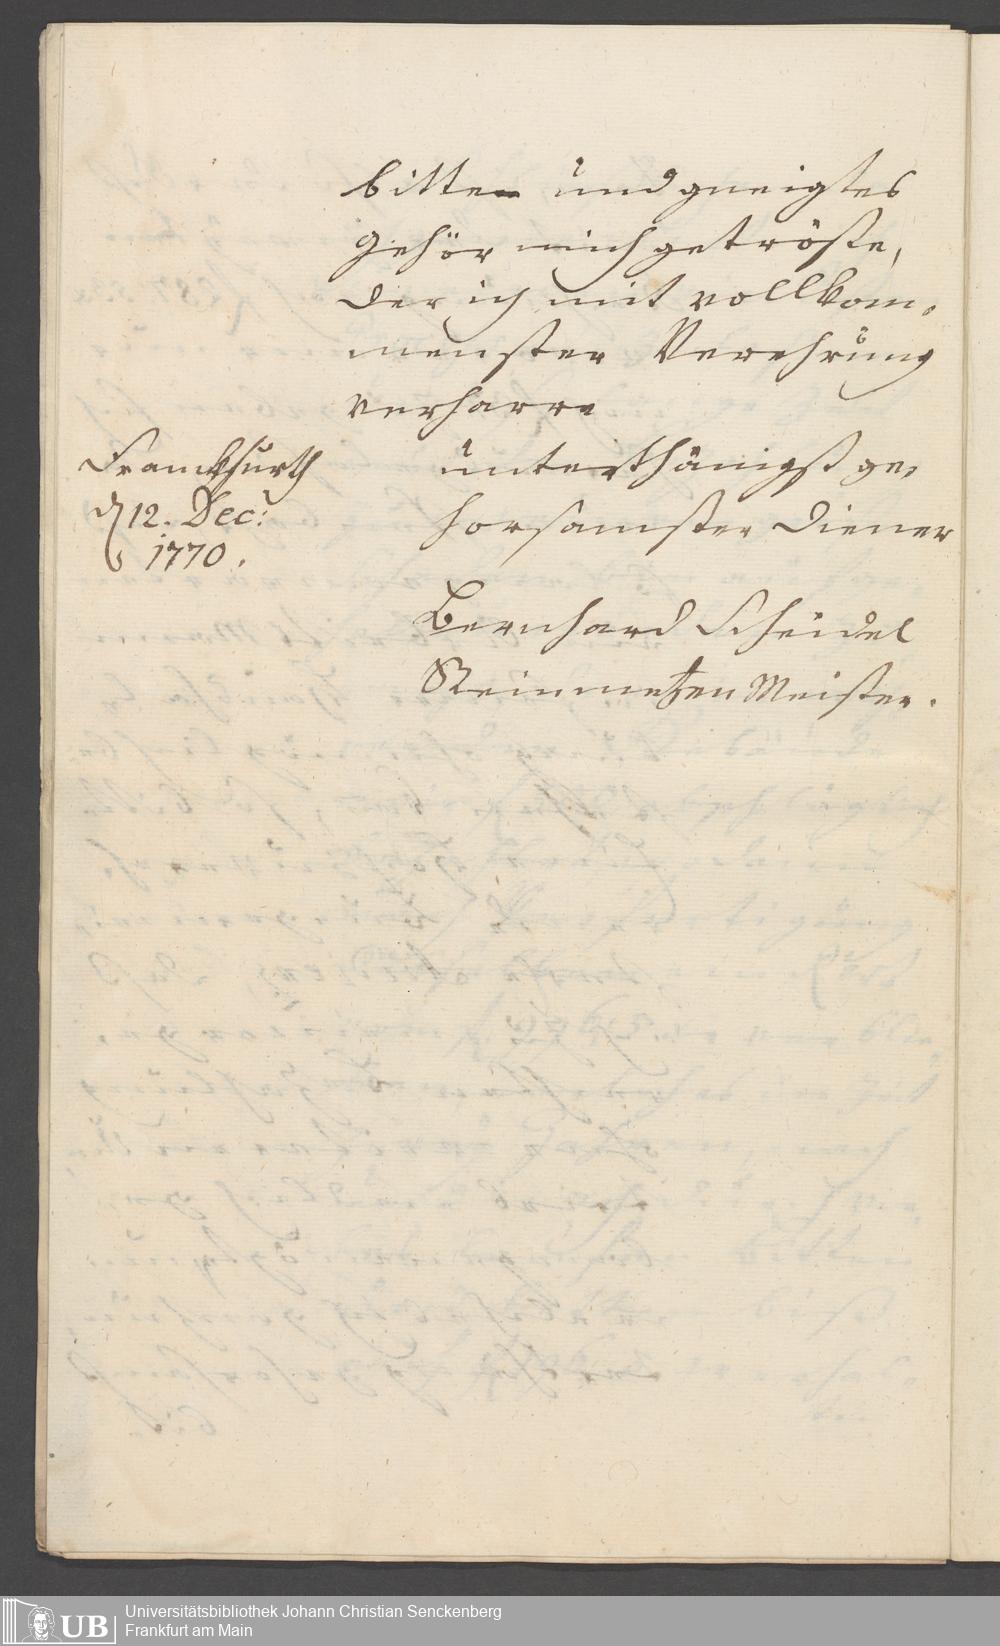 bitten und gneigtes
gehör mich getröste,
der ich mit vollkom,
menster Verehrung
verharre
Franckfurth
d 12. Dec:
1770.
unterthänigst ge,
horsamster Diener
Bernhard Scheidel
Steinmetzen Meister.
UB
Universitätsbibliothek Johann Christian Senckenberg
Frankfurt am Main